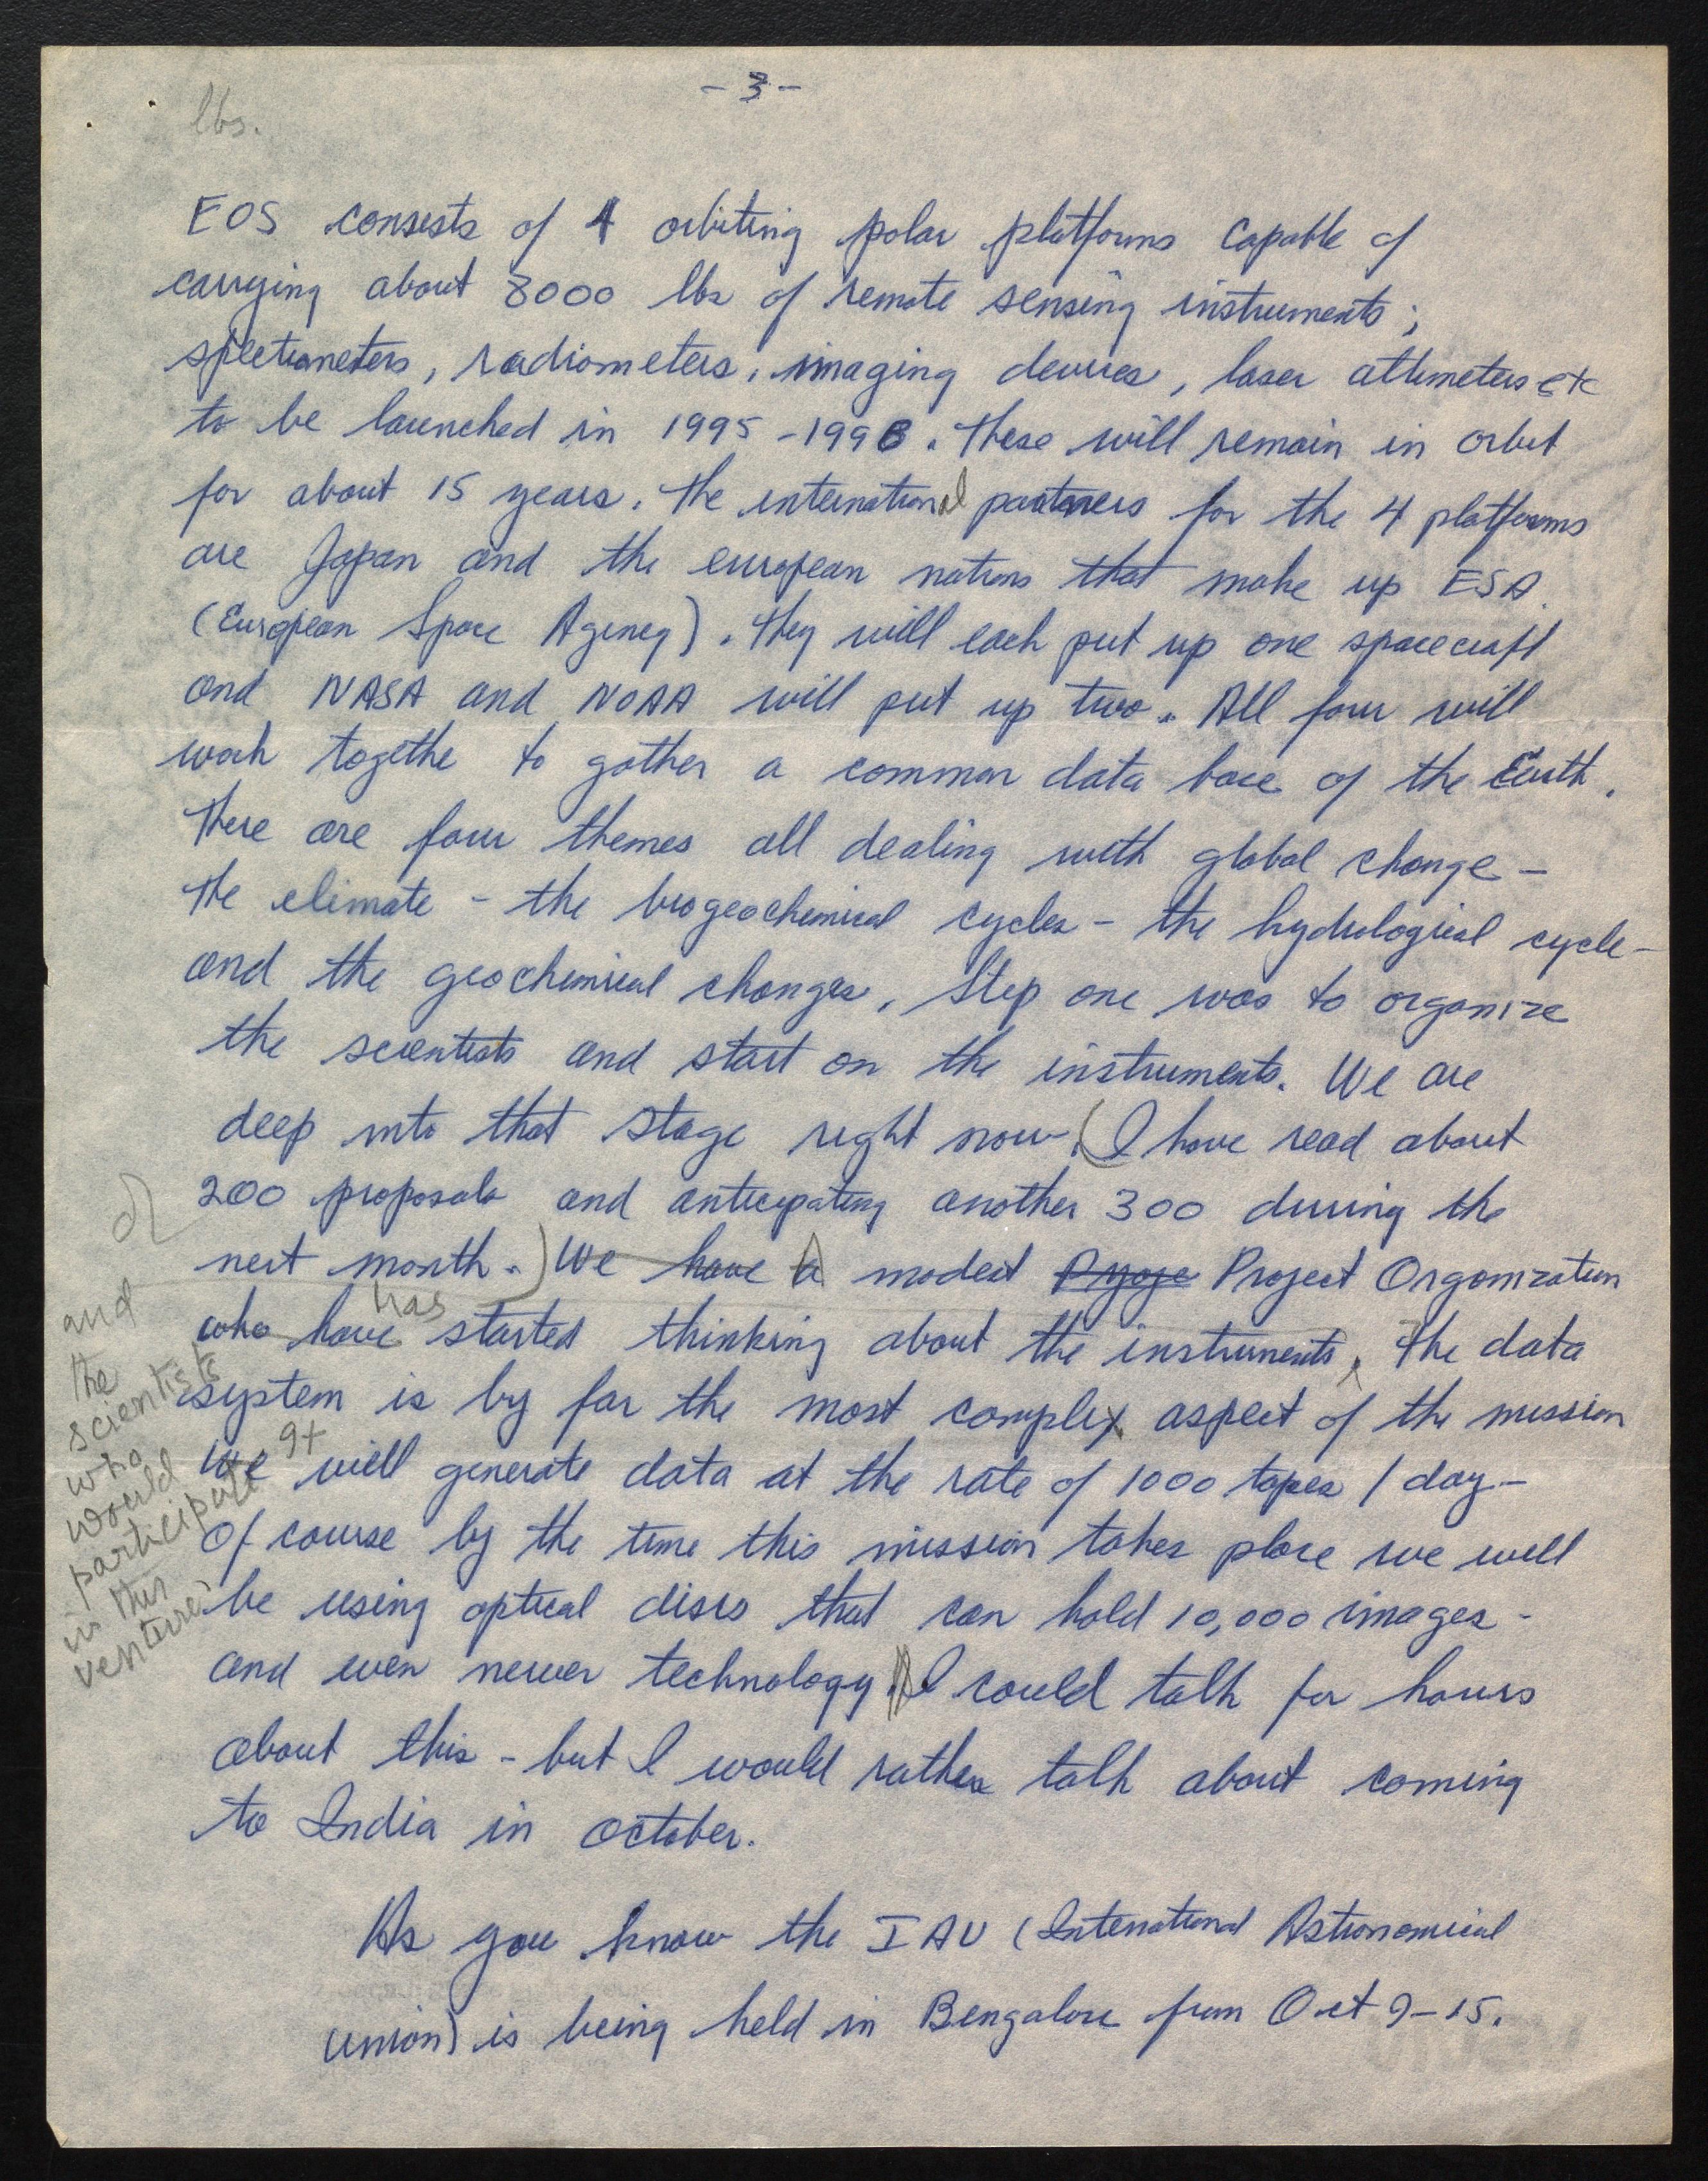 - 3 -
lbs.
EOS consists of 4 orbiting polar platforms capable of
carrying about 8000 lbs of remote sensing instruments;
spectrometers, radiometers, imaging devices, laser altimeters etc
to be launched in 1995 - 1998. These will remain in orbit
for about 15 years. The international partners for the 4 platforms
are Japan and the european nations that make up ESA.
(European Space Agency). They will each put up one spacecraft
and NASA and NOAA will put up two. All four will
work togethe to gather a common data base of the Earth.
There are four themes all dealing with global change -
The climate - the biogeochemical cycles - the hydrological cycle -
and the geochemical changes. Step one was to organize
the scientists and start on the instruments. We are
deep into that stage right now. (I have read about
200 proposals and anticipating another 300 during the
next month.) We have A modest Project Organization
who have has started thinking about the instruments. The data
and
the
scientists
who
would
participate
in this
venture.
system is by far the most complex aspect of the mission
We It will generate data at the rate of 1000 tapes / day -
Of course by the time this mission takes place we will
be using optical discs that can hold 10,000 images -
and even newer technology. I could talk for hours
about this - but I would rather talk about coming
to India in October.
As you know the IAU (International Astronomical
Union) is being held in Bengalore from Oct 9-15.